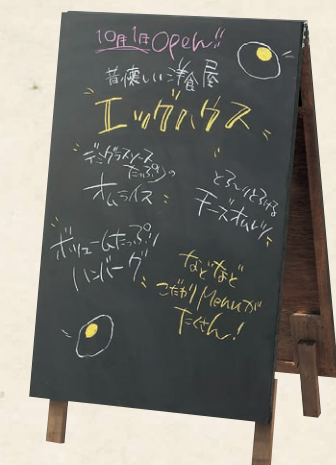 10月1日Open!!
昔懐しい洋食屋
エッグハウス
デミグラスソース
たっぷりの
オムライス
とろ〜りとろける
チーズオムレツ
ボリュームたっぷり!
ハンバーグ
などなど
こだわりMenuが
たくさん!